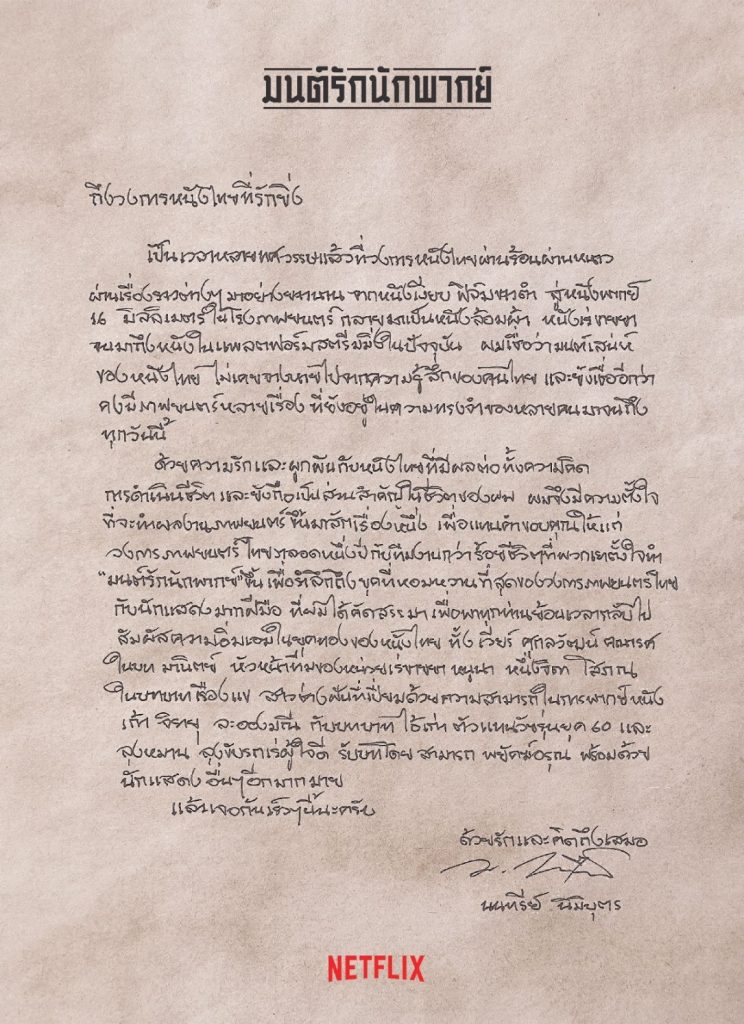 มนต์รักนักพากย์
ถึงวงการหนังไทยที่รักยิ่ง
เป็นเวลาหลายทศวรรษแล้วที่วงการหนังไทยผ่านร้อนผ่านหนาว
ผ่านเรื่องราวต่างๆ มาอย่างยาวนาน จากหนังเงียบ ฟิล์มขาวดำ สู่หนังพากย์
16 มิลลิเมตรในโรงภาพยนตร์ กลายมาเป็นหนังล้อมผ้า หนังเร่ขายยา
จนมาถึงหนังในแพลตฟอร์มสตรีมมิ่งในปัจจุบัน ผมเชื่อว่ามนต์เสน่ห์
ของหนังไทย ไม่เคยจางหายไปจากความรู้สึกของคนไทย และยังเชื่ออีกว่า
คงมีภาพยนตร์หลายเรื่อง ที่ยังอยู่ในความทรงจำของหลายคนมาจนถึง
ทุกวันนี้
ด้วยความรักและผูกพันกับหนังไทยที่มีผลต่อทั้งความคิด
การดำเนินชีวิต และยังถือเป็นส่วนสำคัญในชีวิตของผม ผมจึงมีความตั้งใจ
ที่จะทำผลงานภาพยนตร์ขึ้นมาสักเรื่องหนึ่ง เพื่อแทนคำขอบคุณให้แก่
วงการภาพยนตร์ไทย ตลอดหนึ่งปีกับทีมงานกว่าร้อยชีวิตที่พวกเราตั้งใจทำ
"มนต์รักนักพากย์"ขึ้น เพื่อรำลึกถึงยุคที่หอมหวานที่สุดของวงการภาพยนตร์ไทย
กับนักแสดงมากฝีมือ ที่ผมได้คัดสรรมา เพื่อพาทุกท่านย้อนเวลากลับไป
สัมผัสความอิ่มเอมในยุคทองของหนังไทย ทั้ง เวียร์ ศุกลวัฒน์ คณารศ
ในบท มานิตย์ หัวหน้าทีมของหน่วยเร่ขายยา หนูนา หนึ่งธิดา โสภณ
ในบทบาทเรืองแข สาวช่างฝันที่เปี่ยมด้วยความสามารถในการพากย์หนัง
เก้า จิรายุ ละอองมณี กับบทบาท ไอ้เก่า ตัวแทนวัยรุ่นยุค 60 และ
ลุงหมาน ลุงขับรถเร่ผู้ใจดี รับบทโดย สามารถ พยัคฆ์อรุณ พร้อมด้วย
นักแสดงอื่นๆอีกมากมาย
แล้วเจอกันเร็วๆนี้นะครับ
ด้วยรักและคิดถึงเสมอ
นนทรีย์ นิมิบุตร
NETFLIX